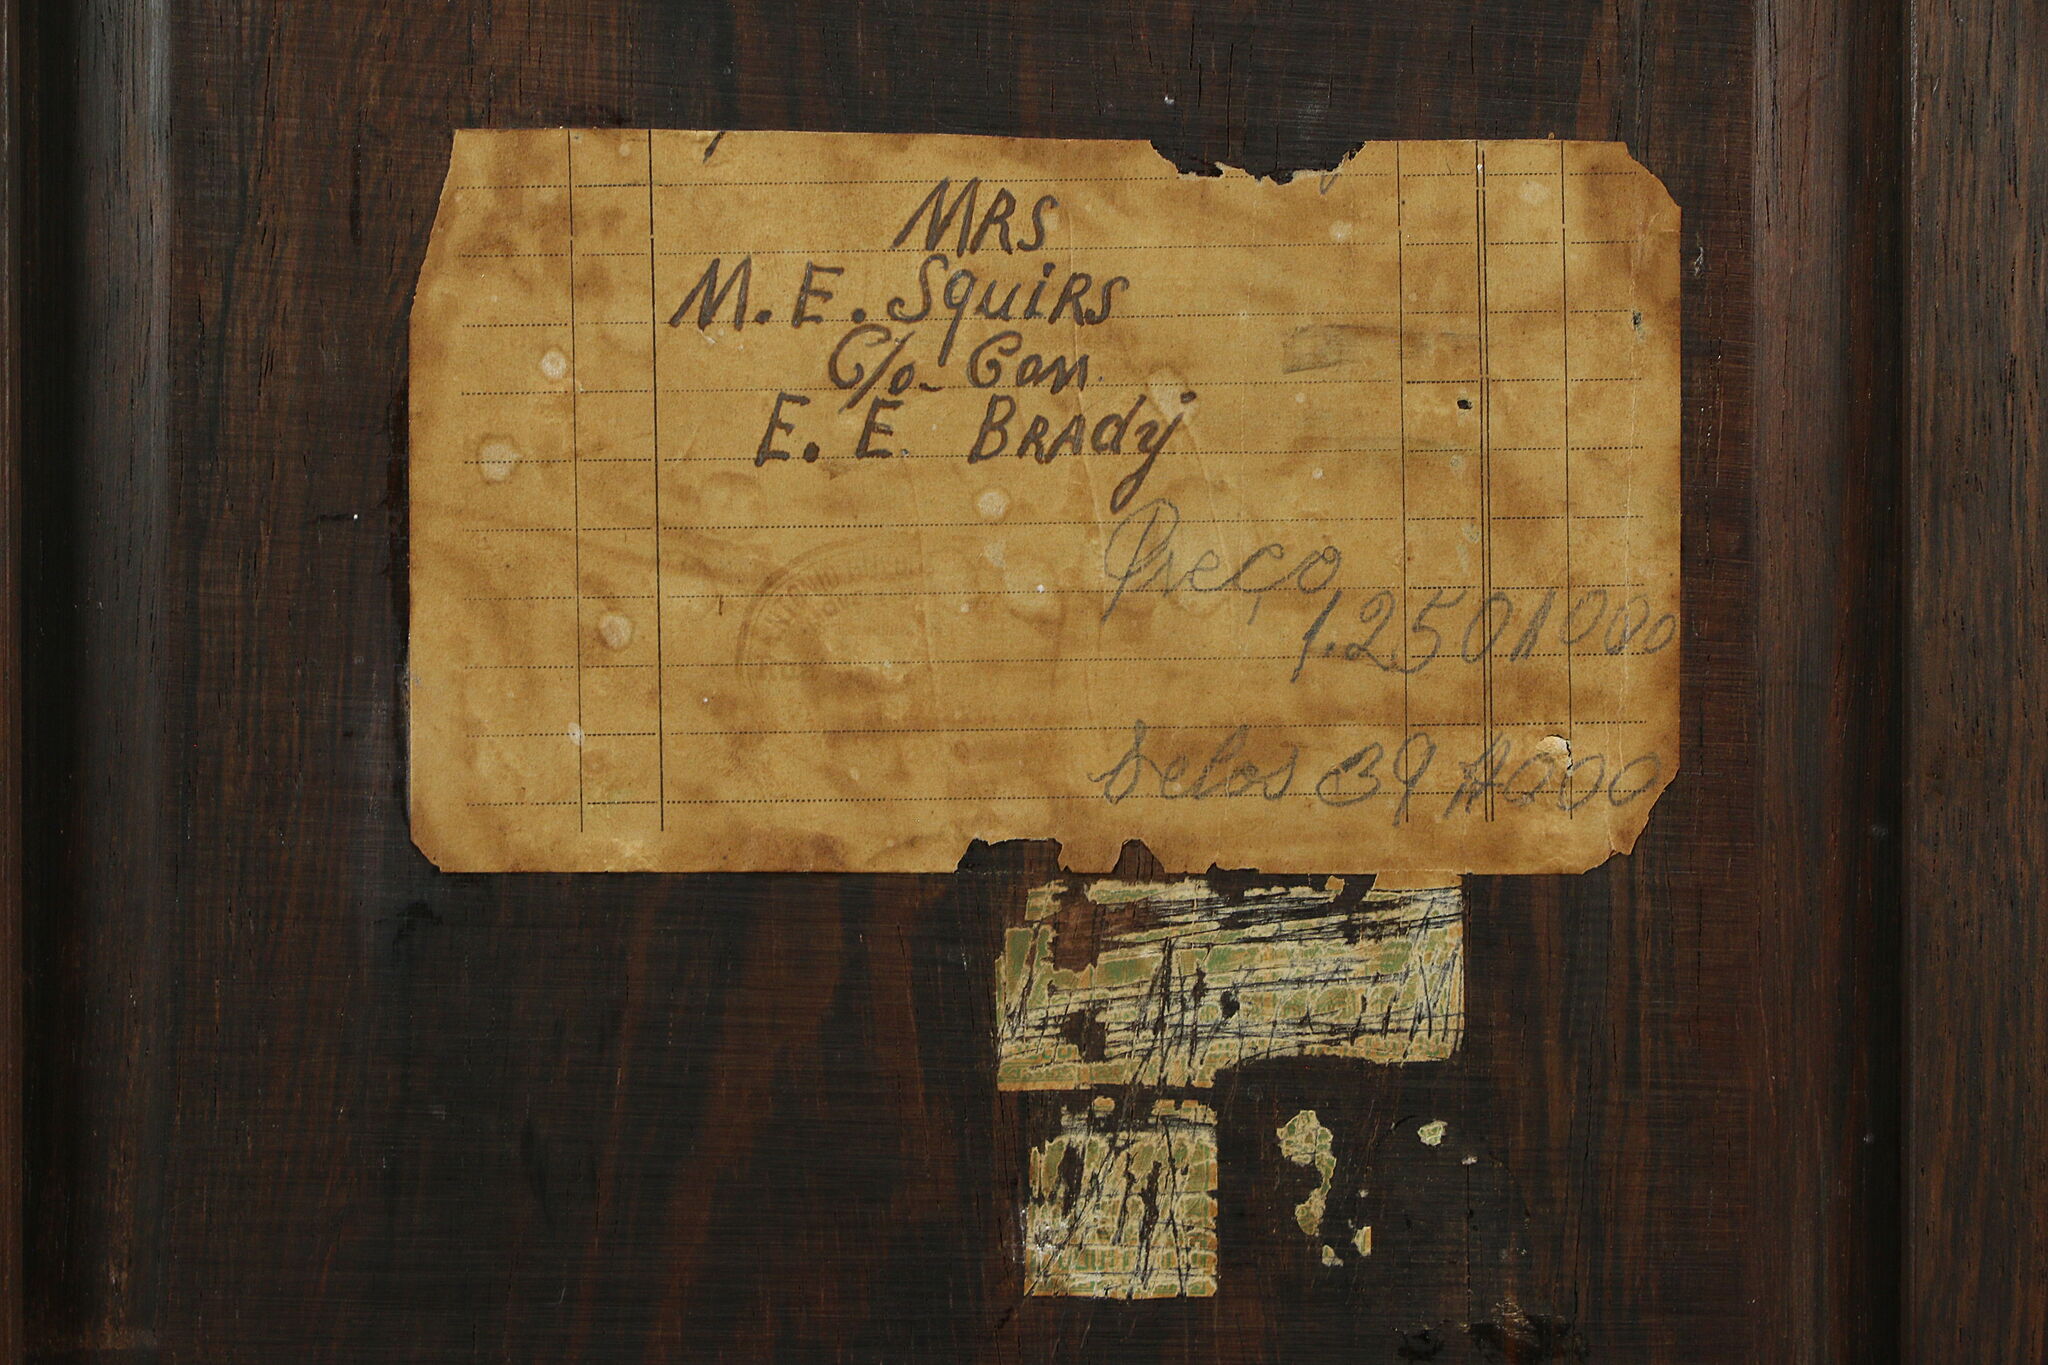 MRS
M. E. SquiRS
C/o- Con
E. E. BRAdy
Preço
1.250$000
Selos 39$000